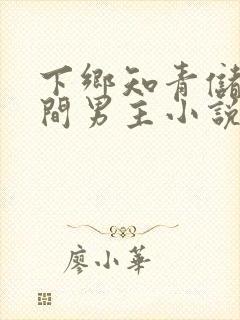 下鄉知青儲
間男主小說
廖小華